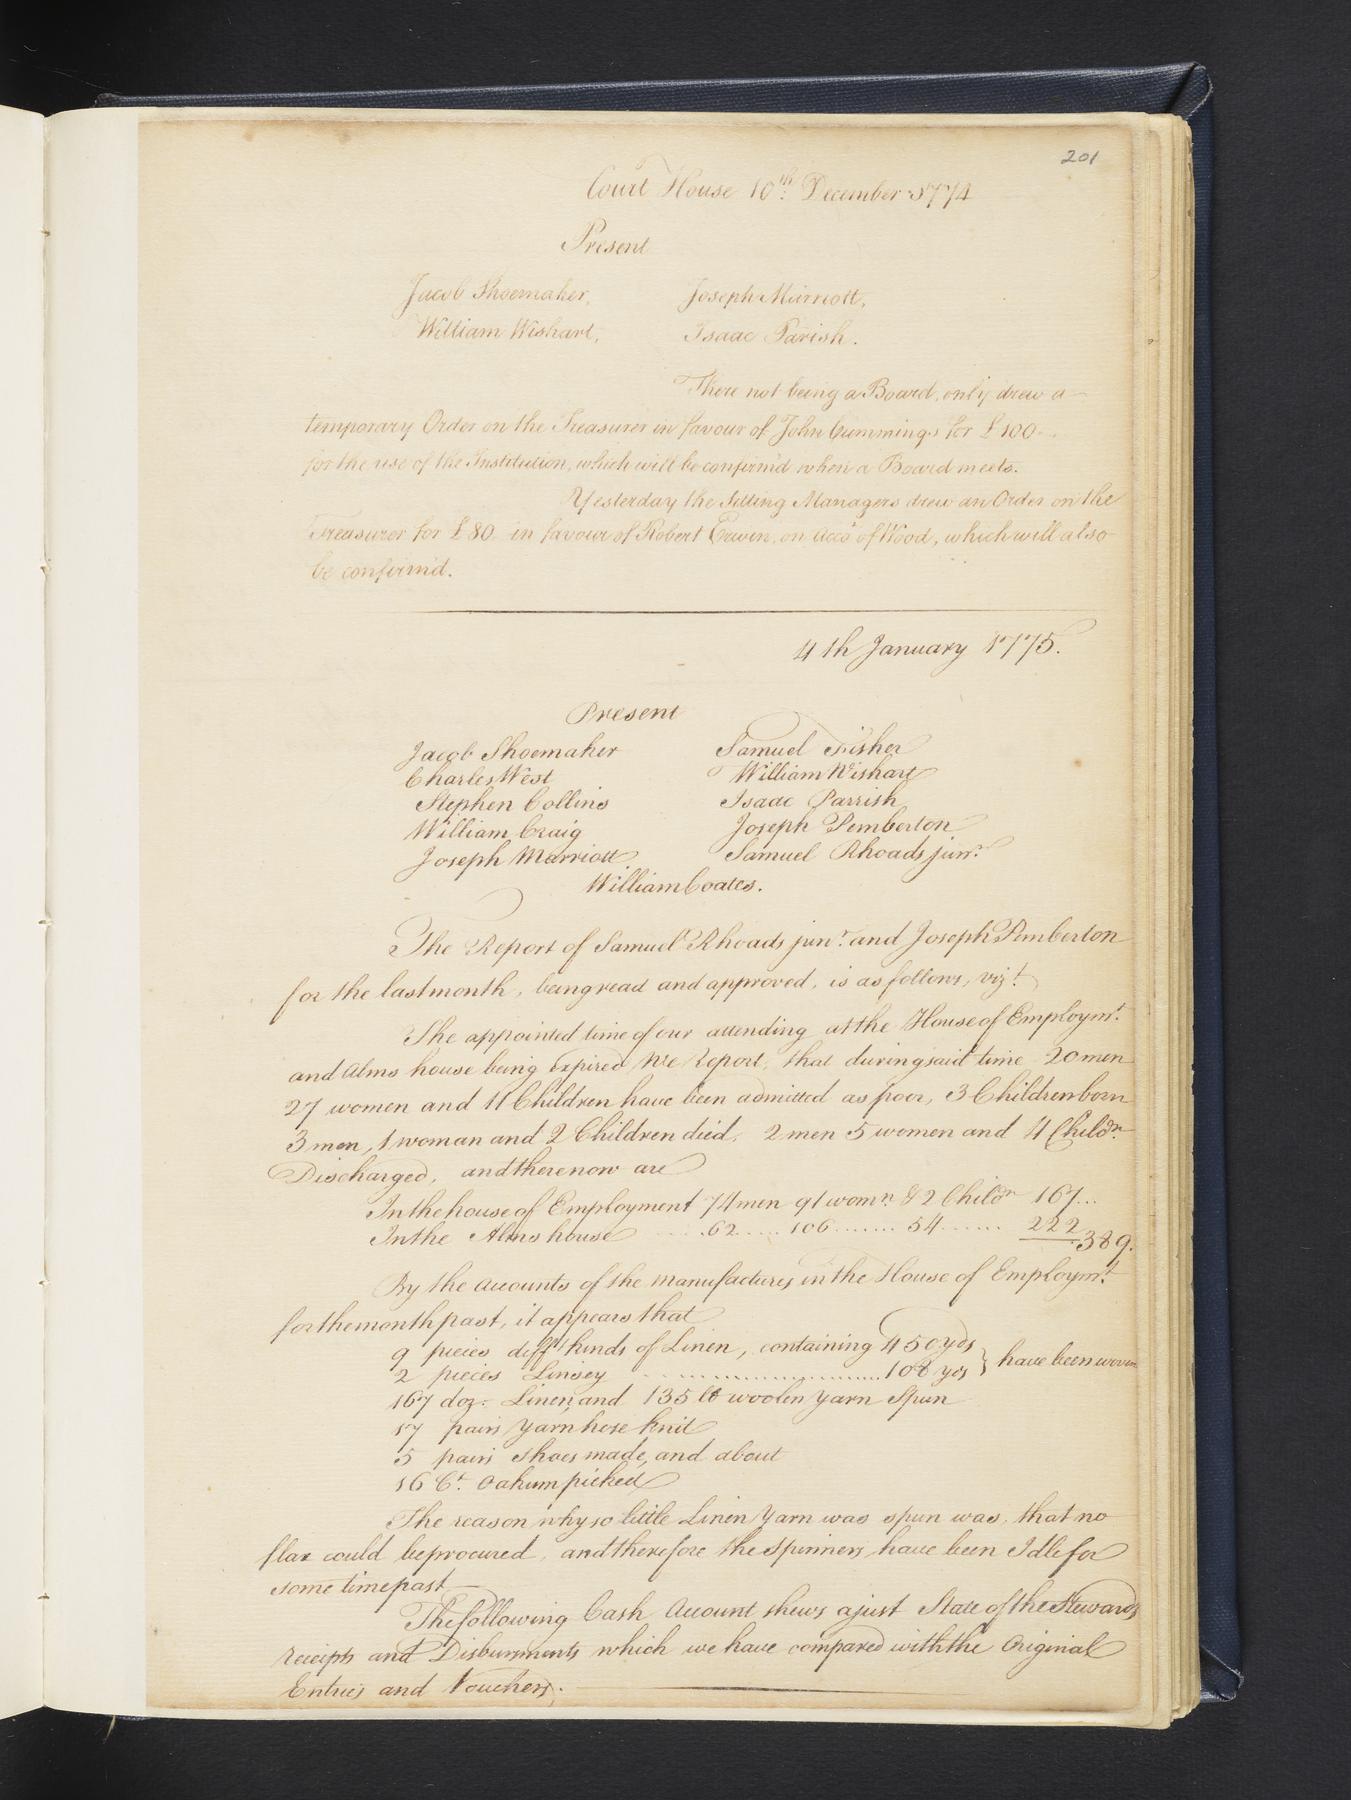 201
Court House 10th December 1774
Present
Jacob Shoemaker, Joseph Marriott,
William Wishart, Isaac Parish.
There not being a Board, only drew a
temporary Order on the Treasurer in favour of John Cummings for £100..
for the use of the Institution, which will be confirm'd when a Board meets.
Yesterday the Sitting Managers drew an Order on the
Treasurer for £80 in favour of Robert Erwin, on acco.t of Wood, which will also
be confirm'd.
4th January 1775.
Present
Jacob Shoemaker Samuel Fisher
Charles West William Wishart
Stephen Collins Isaac Parrish
William Craig Joseph Pemberton
Joseph Marriott Samuel Rhoads junr.
William Coates.
The Report of Samuel Rhoads junr. and Joseph Pemberton
for the last month, being read and approved, is as follows, vizt.
The appointed time of our attending at the House of Employmt.
and Alms house being expired We Report, that during said time 20 men
27 women and 11 Children have been admitted as poor, 3 Children born
3 men, 1 woman and 2 Children died, 2 men 5 women and 4 Childn.
Discharged, and there now are
In the house of Employment 74 men 91 womn. & 2 Childn 167...
In the Alms house .....62.....106.......54...... 222 389.
By the Accounts of the manufactures in the House of Employmt.
for the month past, it appears that
9 pieces difft. kinds of Linen, containing 450 yds
2 pieces Linsey ....................108 yds } have been woven
167 doz. Linen, and 135 lb woolen Yarn Spun
17 pairs Yarn hose knit
5 pairs Shoes made, and about
16 Ct. Oakum picked
The reason why so little Linen Yarn was spun was, that no
flax could be procured, and therefore the Spinners have been Idle for
some time past
The following Cash Account shews a just State of the Stewards
receipts and Disbursments which we have compared with the Original
Entries and Vouchers.